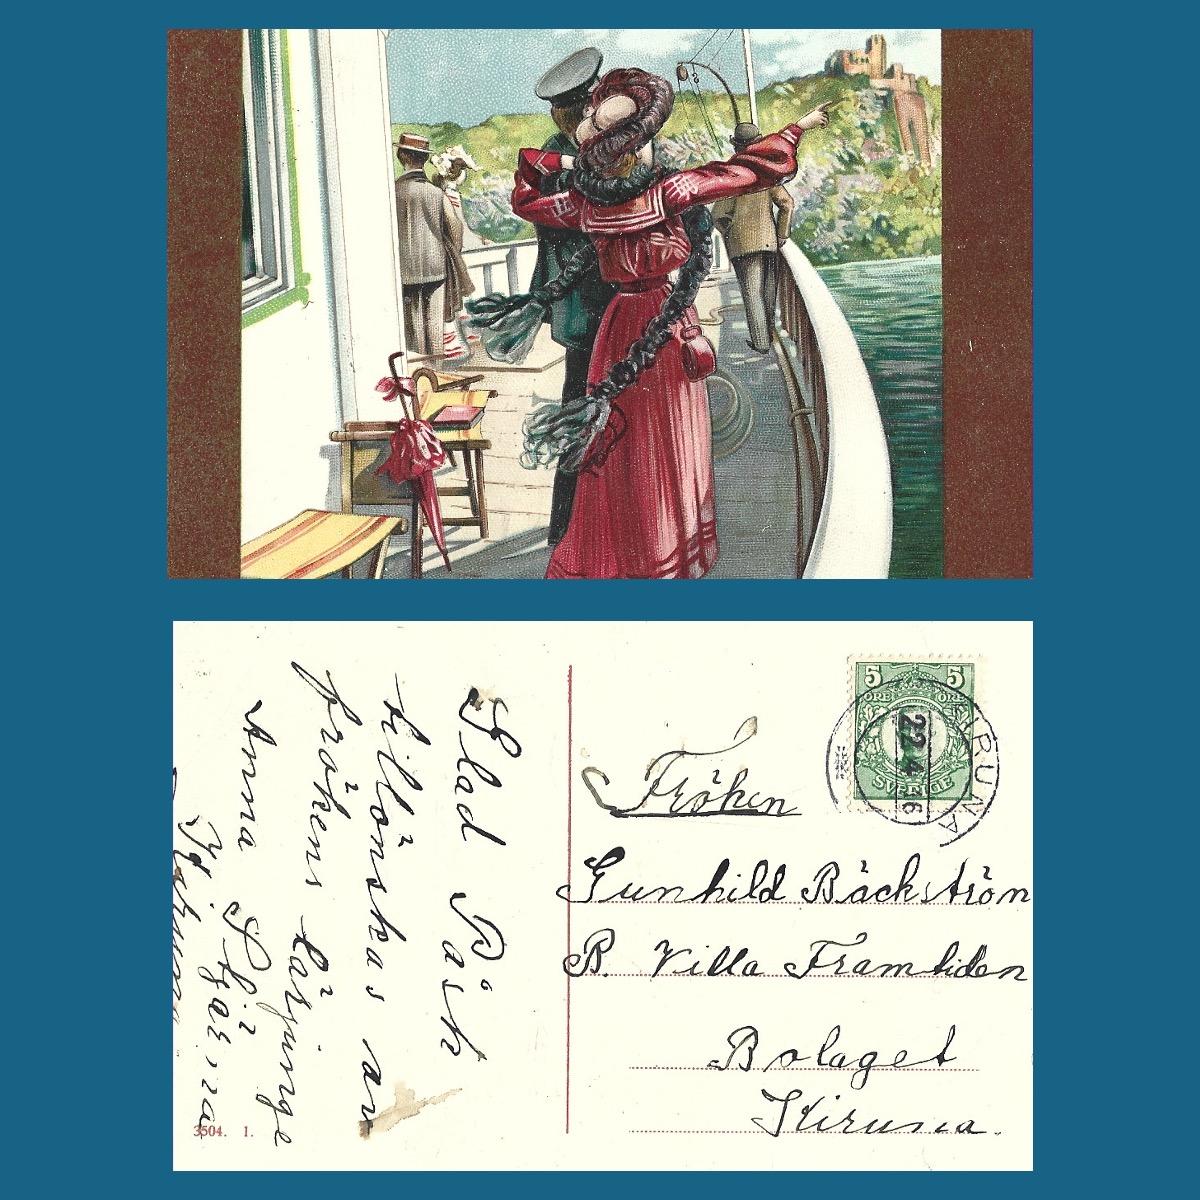 Glad Påsk
tillönskas av
frökens lärjunge
Anna Stjärna
Kiruna
3504. 1.
5 5
ÖRE ÖRE
SVERIGE
KIRUNA
22.4
Fröken
Gunhild Bäckström
B. Villa Framtiden
Bolaget
Kiruna.